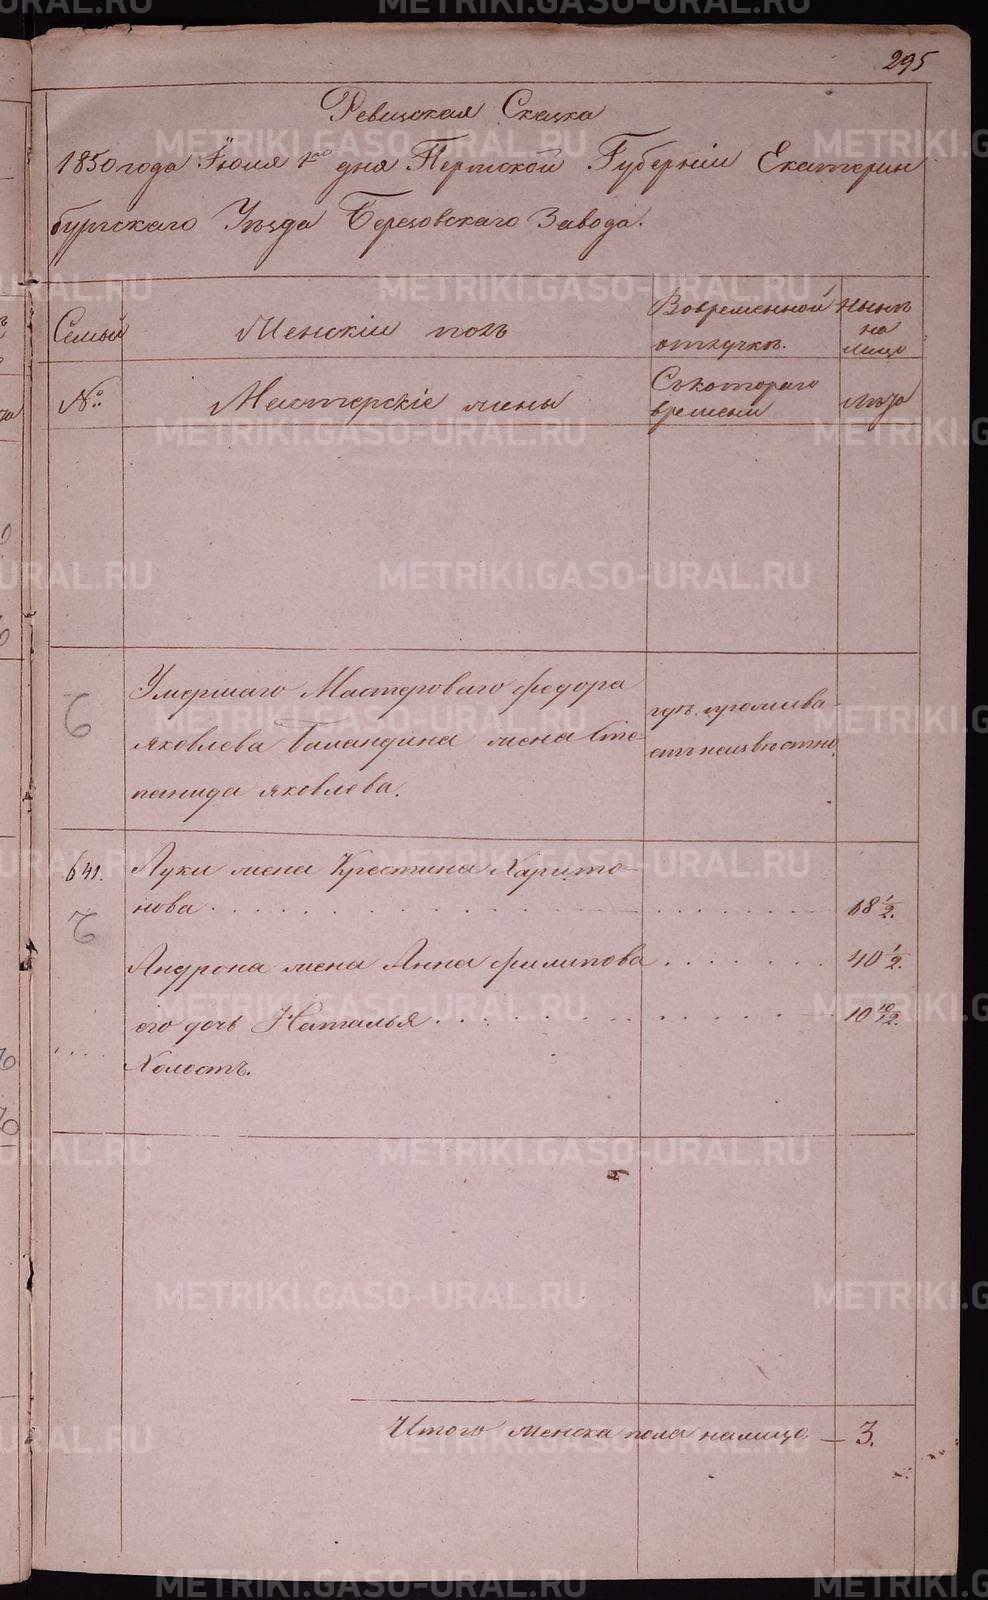 295
Ревизская Сказка
1850 года Июля 1го дня Пермской Губернiи Екатерин
бургскаго Уезда Березовскаго Завода.
Семьи
Женскiй полъ
Вовременной
отлучкѣ.
Нынѣ
на
лицо
№:
Мастерскiе жены
Съкотораго
времени
лѣта
Умершаго Мастероваго Федора
Яковлева Баландина жена Сте
панида Яковлева.
гдѣ прожива
етъ неизвестно.
641.
Луки жена Крестина Харито
нова . . . . . . . . . . . . . . 18 1/2.
Андрона жена Анна Филипова . . . . . . 40 1/2.
его дочь Наталья . . . . . . . . . . . 10 10/12.
Холостъ.
Итого женска пола налицо. — 3.
METRIKI.GASO-URAL.RU